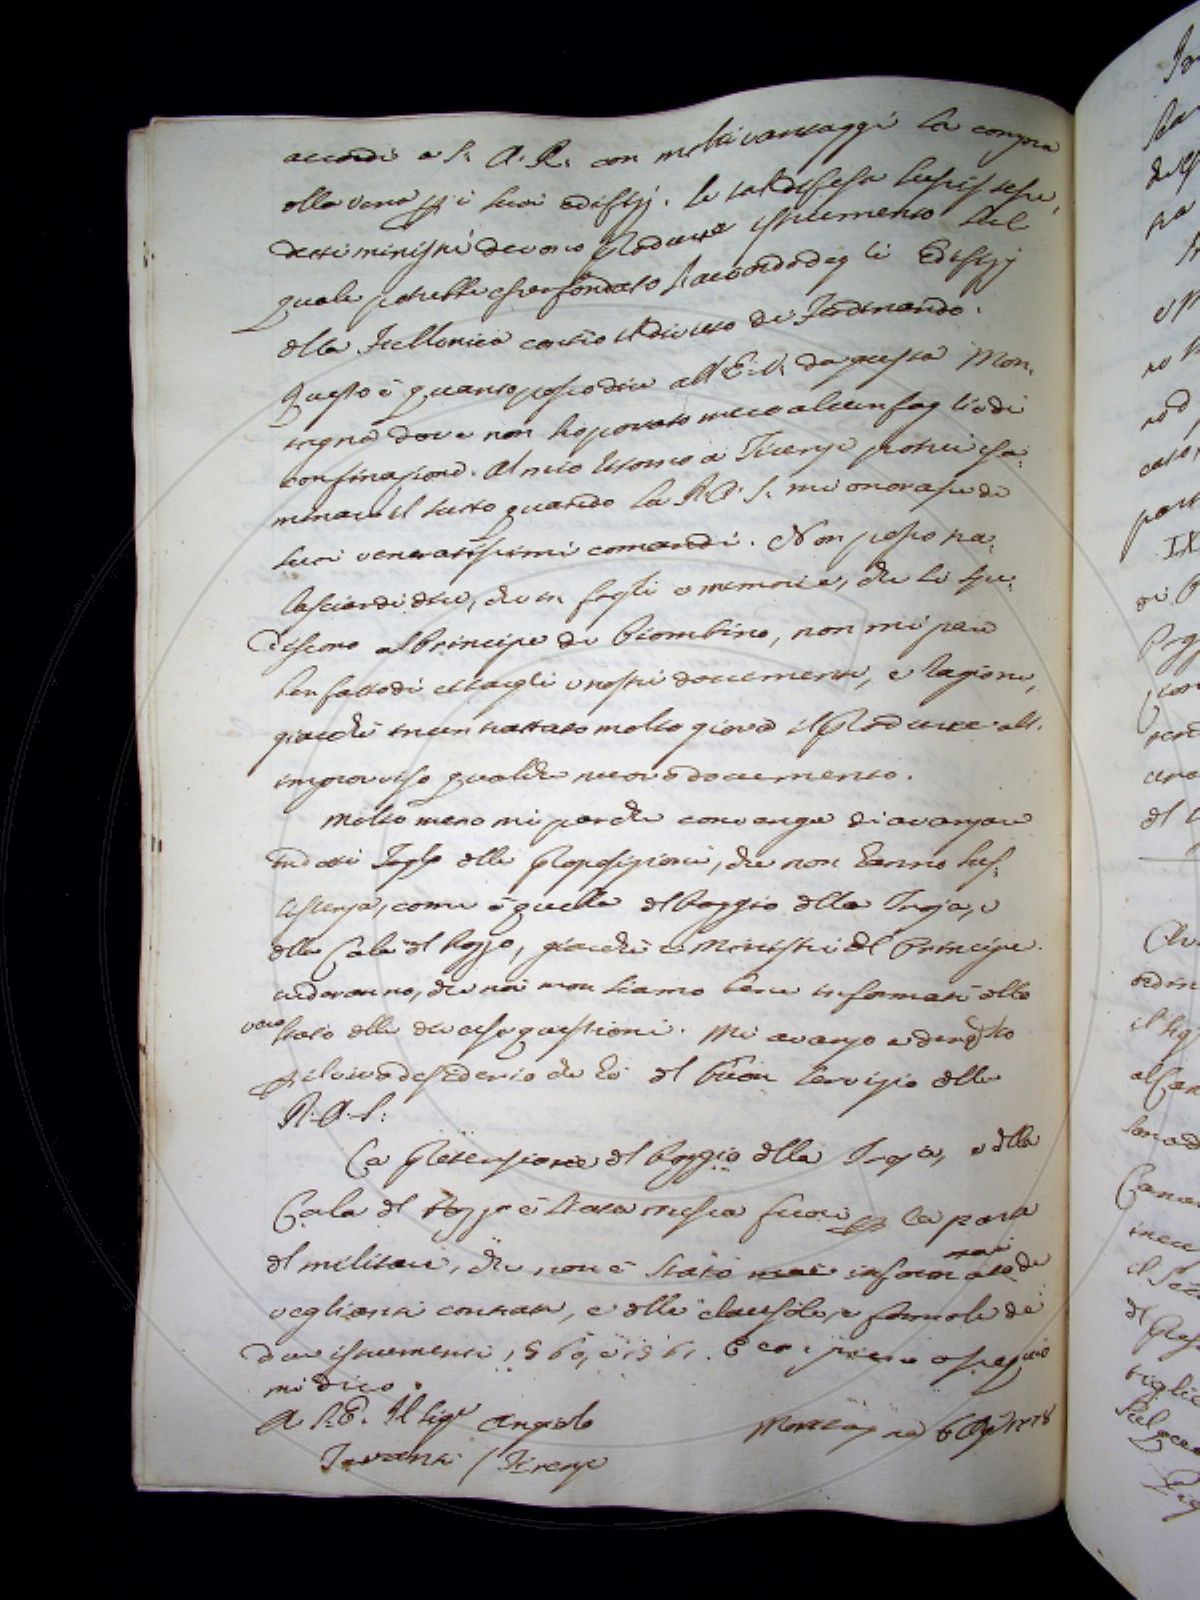 accordi a S. A. R. con molti vantaggi la compra
della vena p i suoi edifizj. Se tal difesa sussistesse,
detti ministri devono produrre istrumento sul
quale potrebbe esser fondato l'accordo degli Edifizj
della Fullonica contro il divieto di Ferdinando.
Questo è quanto posso dire all'E.V. da questa Mon-
tagna dove non ho portato meco alcun foglio di
confinazione. Al mio ritorno a Firenze potrei esa-
minare il tutto quando la R.A.S. mi onorasse di
suoi veneratissimi comandi. Non posso tra-
lasciar di dire, che in fogli o memorie, che si spe-
discono al Principe di Piombino, non mi pare
ben fatto di citargli i nostri documenti, e ragioni,
giacchè in un trattato molto giova il produrre all'
improvviso qualche nuovo documento.
Molto meno mi par che convenga di avanzare
in detti fogli delle proposizioni, che non hanno sus-
sistenza, come è quella del Poggio della Troja, e
della Cala del Pozzo, giacchè i Ministri del Principe
crederanno, che noi non siamo bene informati dello
vero stato delle diverse questioni. Mi avanzo a dir questo
p il vivo desiderio che ho del buon servizio della
R. A. S.
La pretensione del Poggio della Troja, e della
Cala del Pozzo è stata messa fuori p la parte
del militare, che non è stato mai informato de
veglianti contratti, e delle clausole, e formole de
due istrumenti 1560, e 1561. E co i pieno ossequio
mi dico.
A S.E. Il Sigr Angelo
Tavanti / Firenze
Montagna 6 Ag 1778